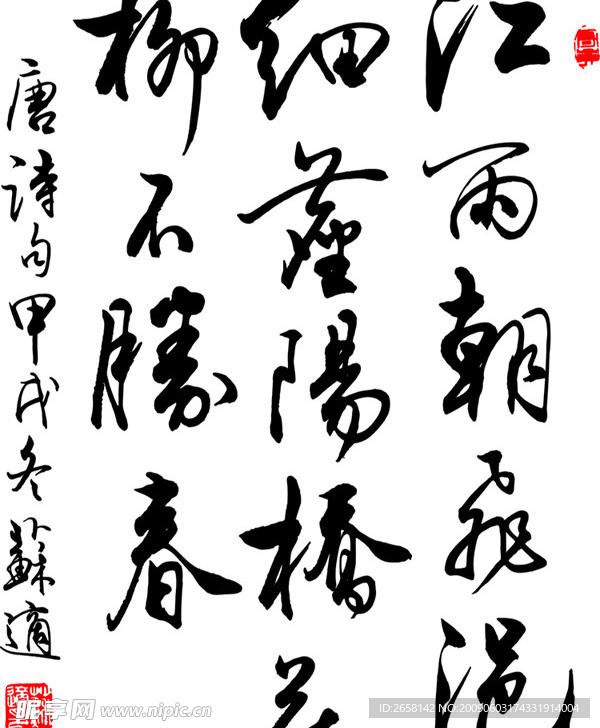 江雨朝飛浥
細塵陽橋花
柳不勝春
唐詩句甲戌冬蘇適
昵享网 www.nipic.cn
ID:2658142 NO:20090603174331914004